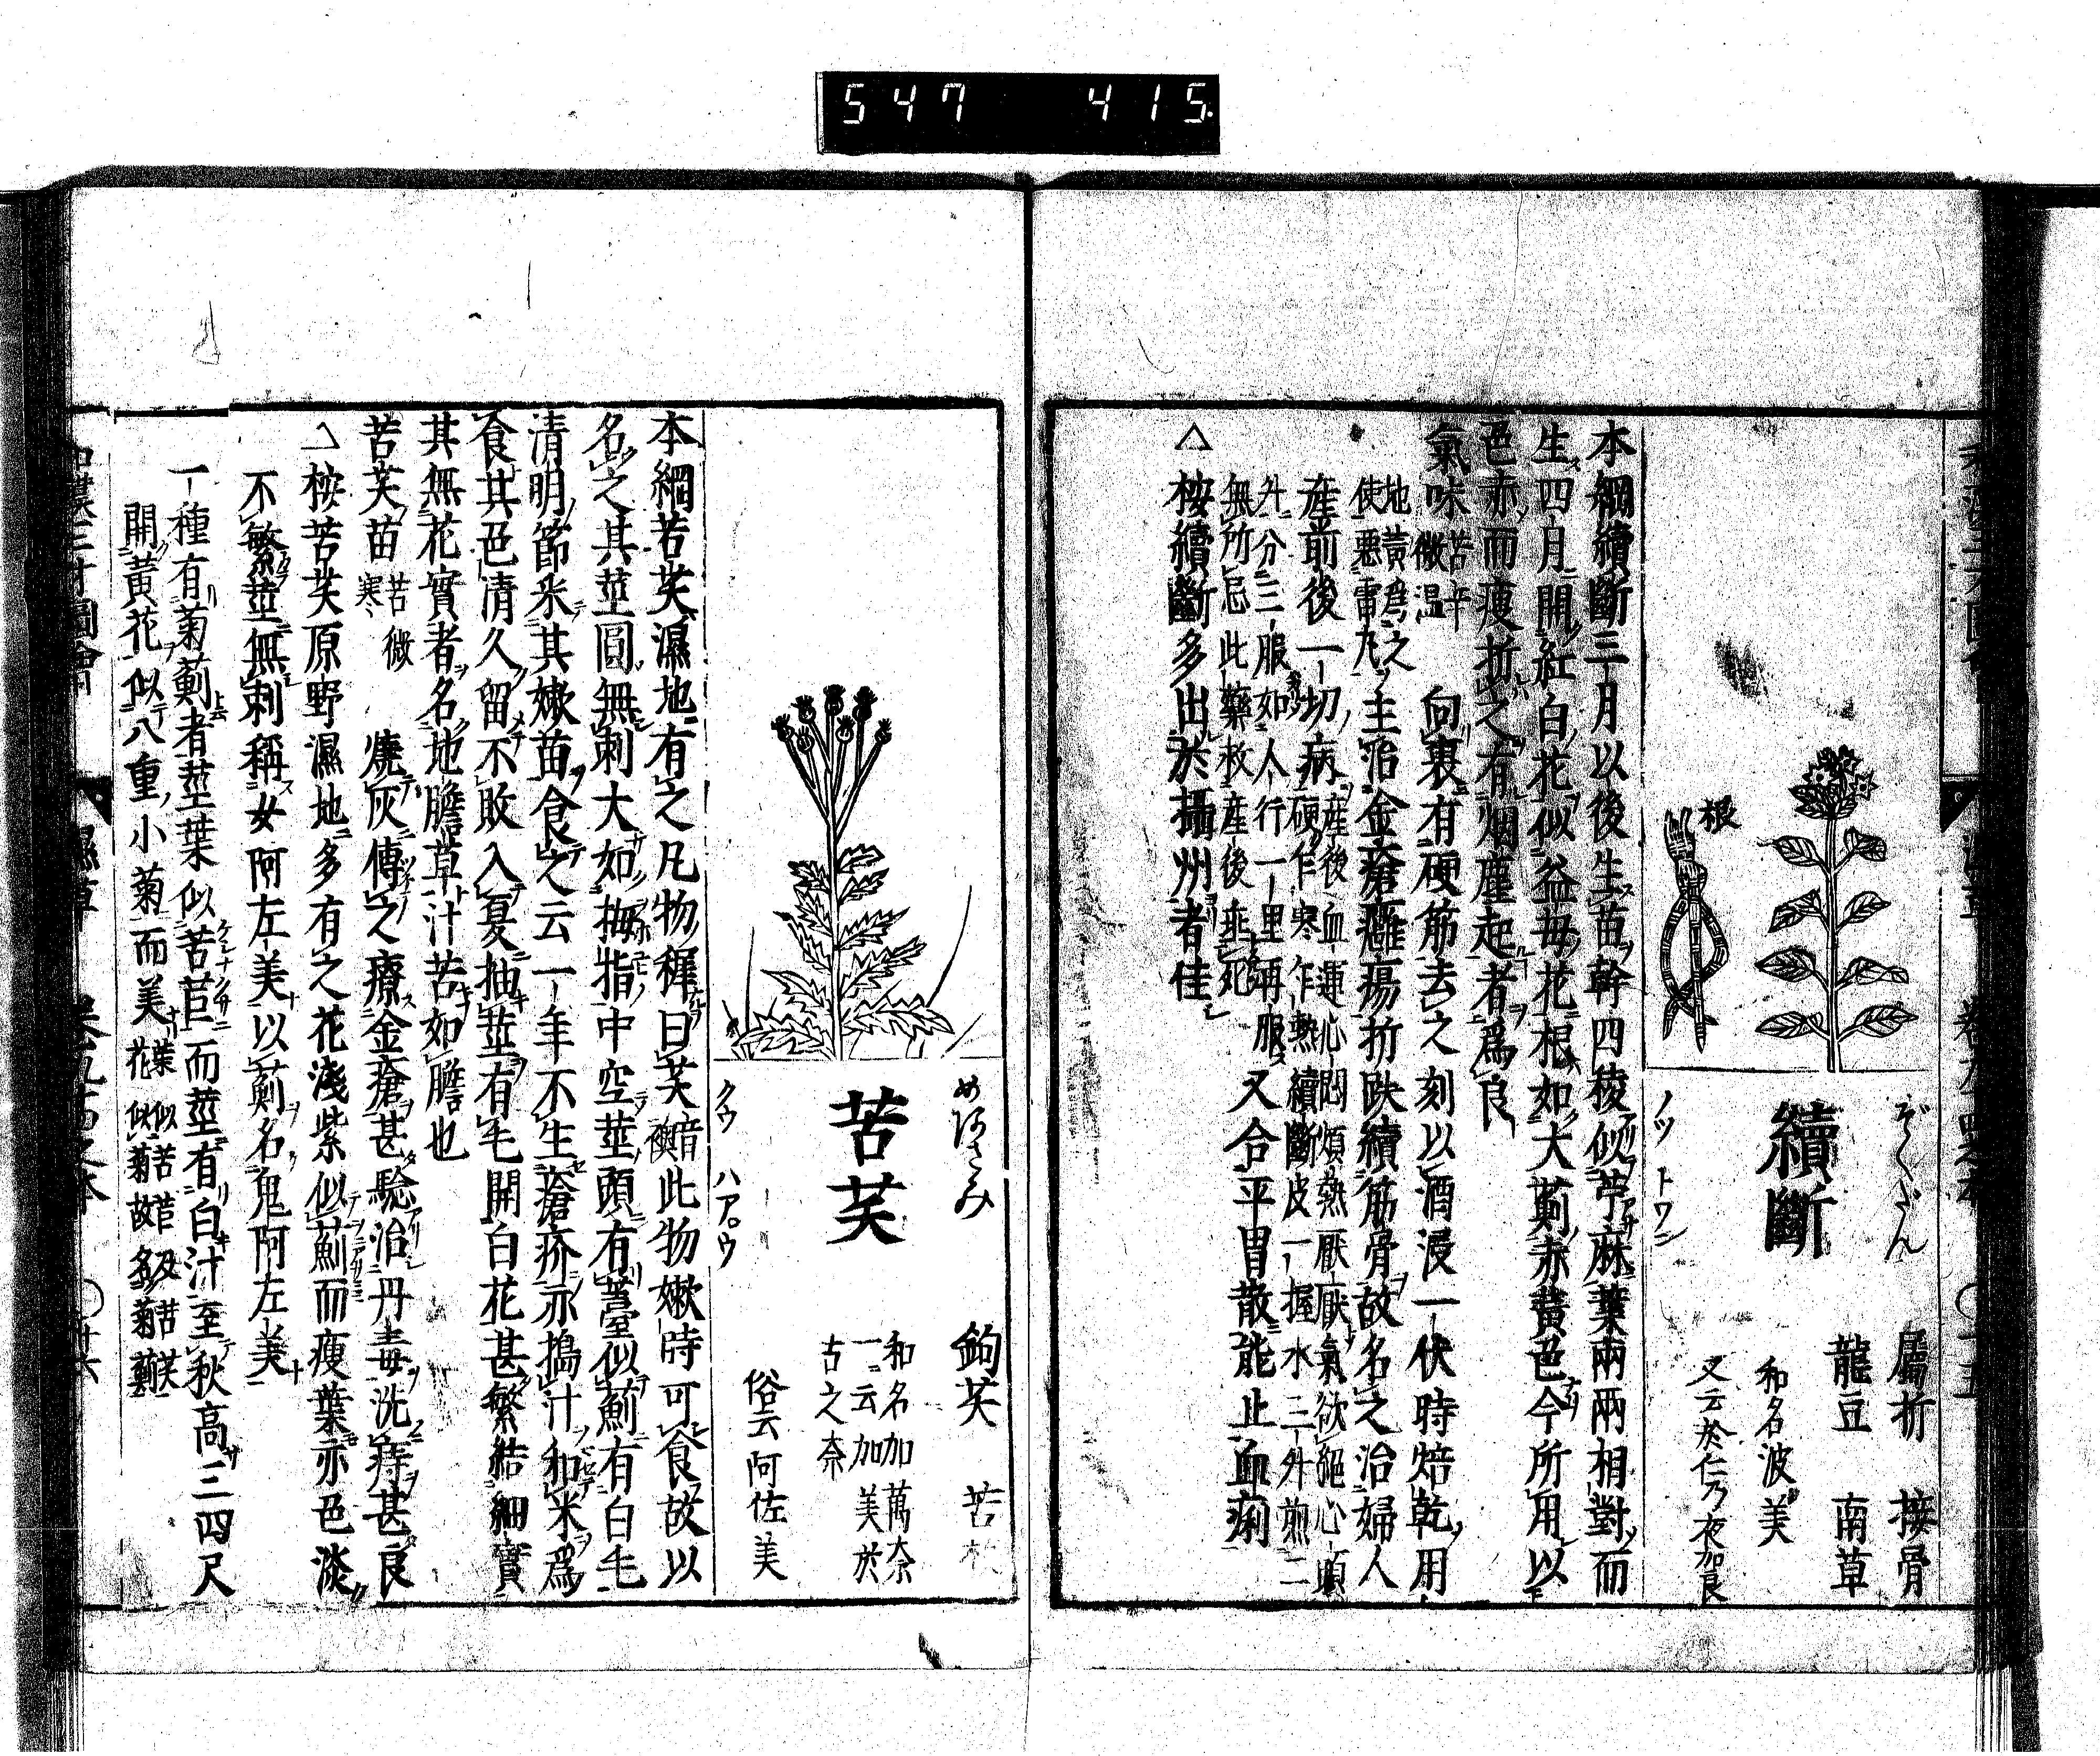 547 415
ぞくだん
續斷
ソツ トワン
屬折 接骨
龍豆 南草
和名波美
又云於仁乃夜加良
根
本綱續斷三月以後生苗幹四稜似苧麻葉兩兩相對而
生四月開紅白花似益母花根如大薊赤黃色今所用以
色赤而瘦折之有烟塵起者爲良
氣味 苦辛微温 向裏有硬筋去之刻以酒浸一伏時焙乾用
地黃爲之使惡雷丸 主治金瘡癰瘍折跌續筋骨故名之治婦人
産前後一切病 産後血運心悶煩熱厥厥氣欲絕心頭
硬乍寒乍熱續斷皮一握水三升煎二
升分三服如人行一里再服
無所忌此藥救産後垂死 又合平胃散能止血痢
△按續斷多出於攝州者佳
めあざみ
苦芺
クウ ハアウ
鉤芺 苦
和名加萬奈
一云加美於
古之奈
俗云阿佐美
本綱苦芺濕地有之凡物穉曰芺音襖此物嫩時可食故以
名之其莖圓無刺大如拇指中空莖頭有薹似薊有白毛
清明節采其嫩苗食之云一年不生瘡疥亦搗汁和米爲
食其色清久留不敗入夏抽莖有毛開白花甚繁結細實
其無花實者名地膽草汁苦如膽也
苦芺苗 苦微寒 燒灰傅之療金瘡甚驗治丹毒洗痔甚良
△按苦芺原野濕地多有之花淺紫似薊而瘦葉亦色淡
不繁莖無刺稱女阿左美以薊名鬼阿左美
一種有菊薊者莖葉似苦苣而莖有白汁至秋高三四尺
開黃花似八重小菊而美 葉似苦苣及苦芺
花似菊故名菊薊